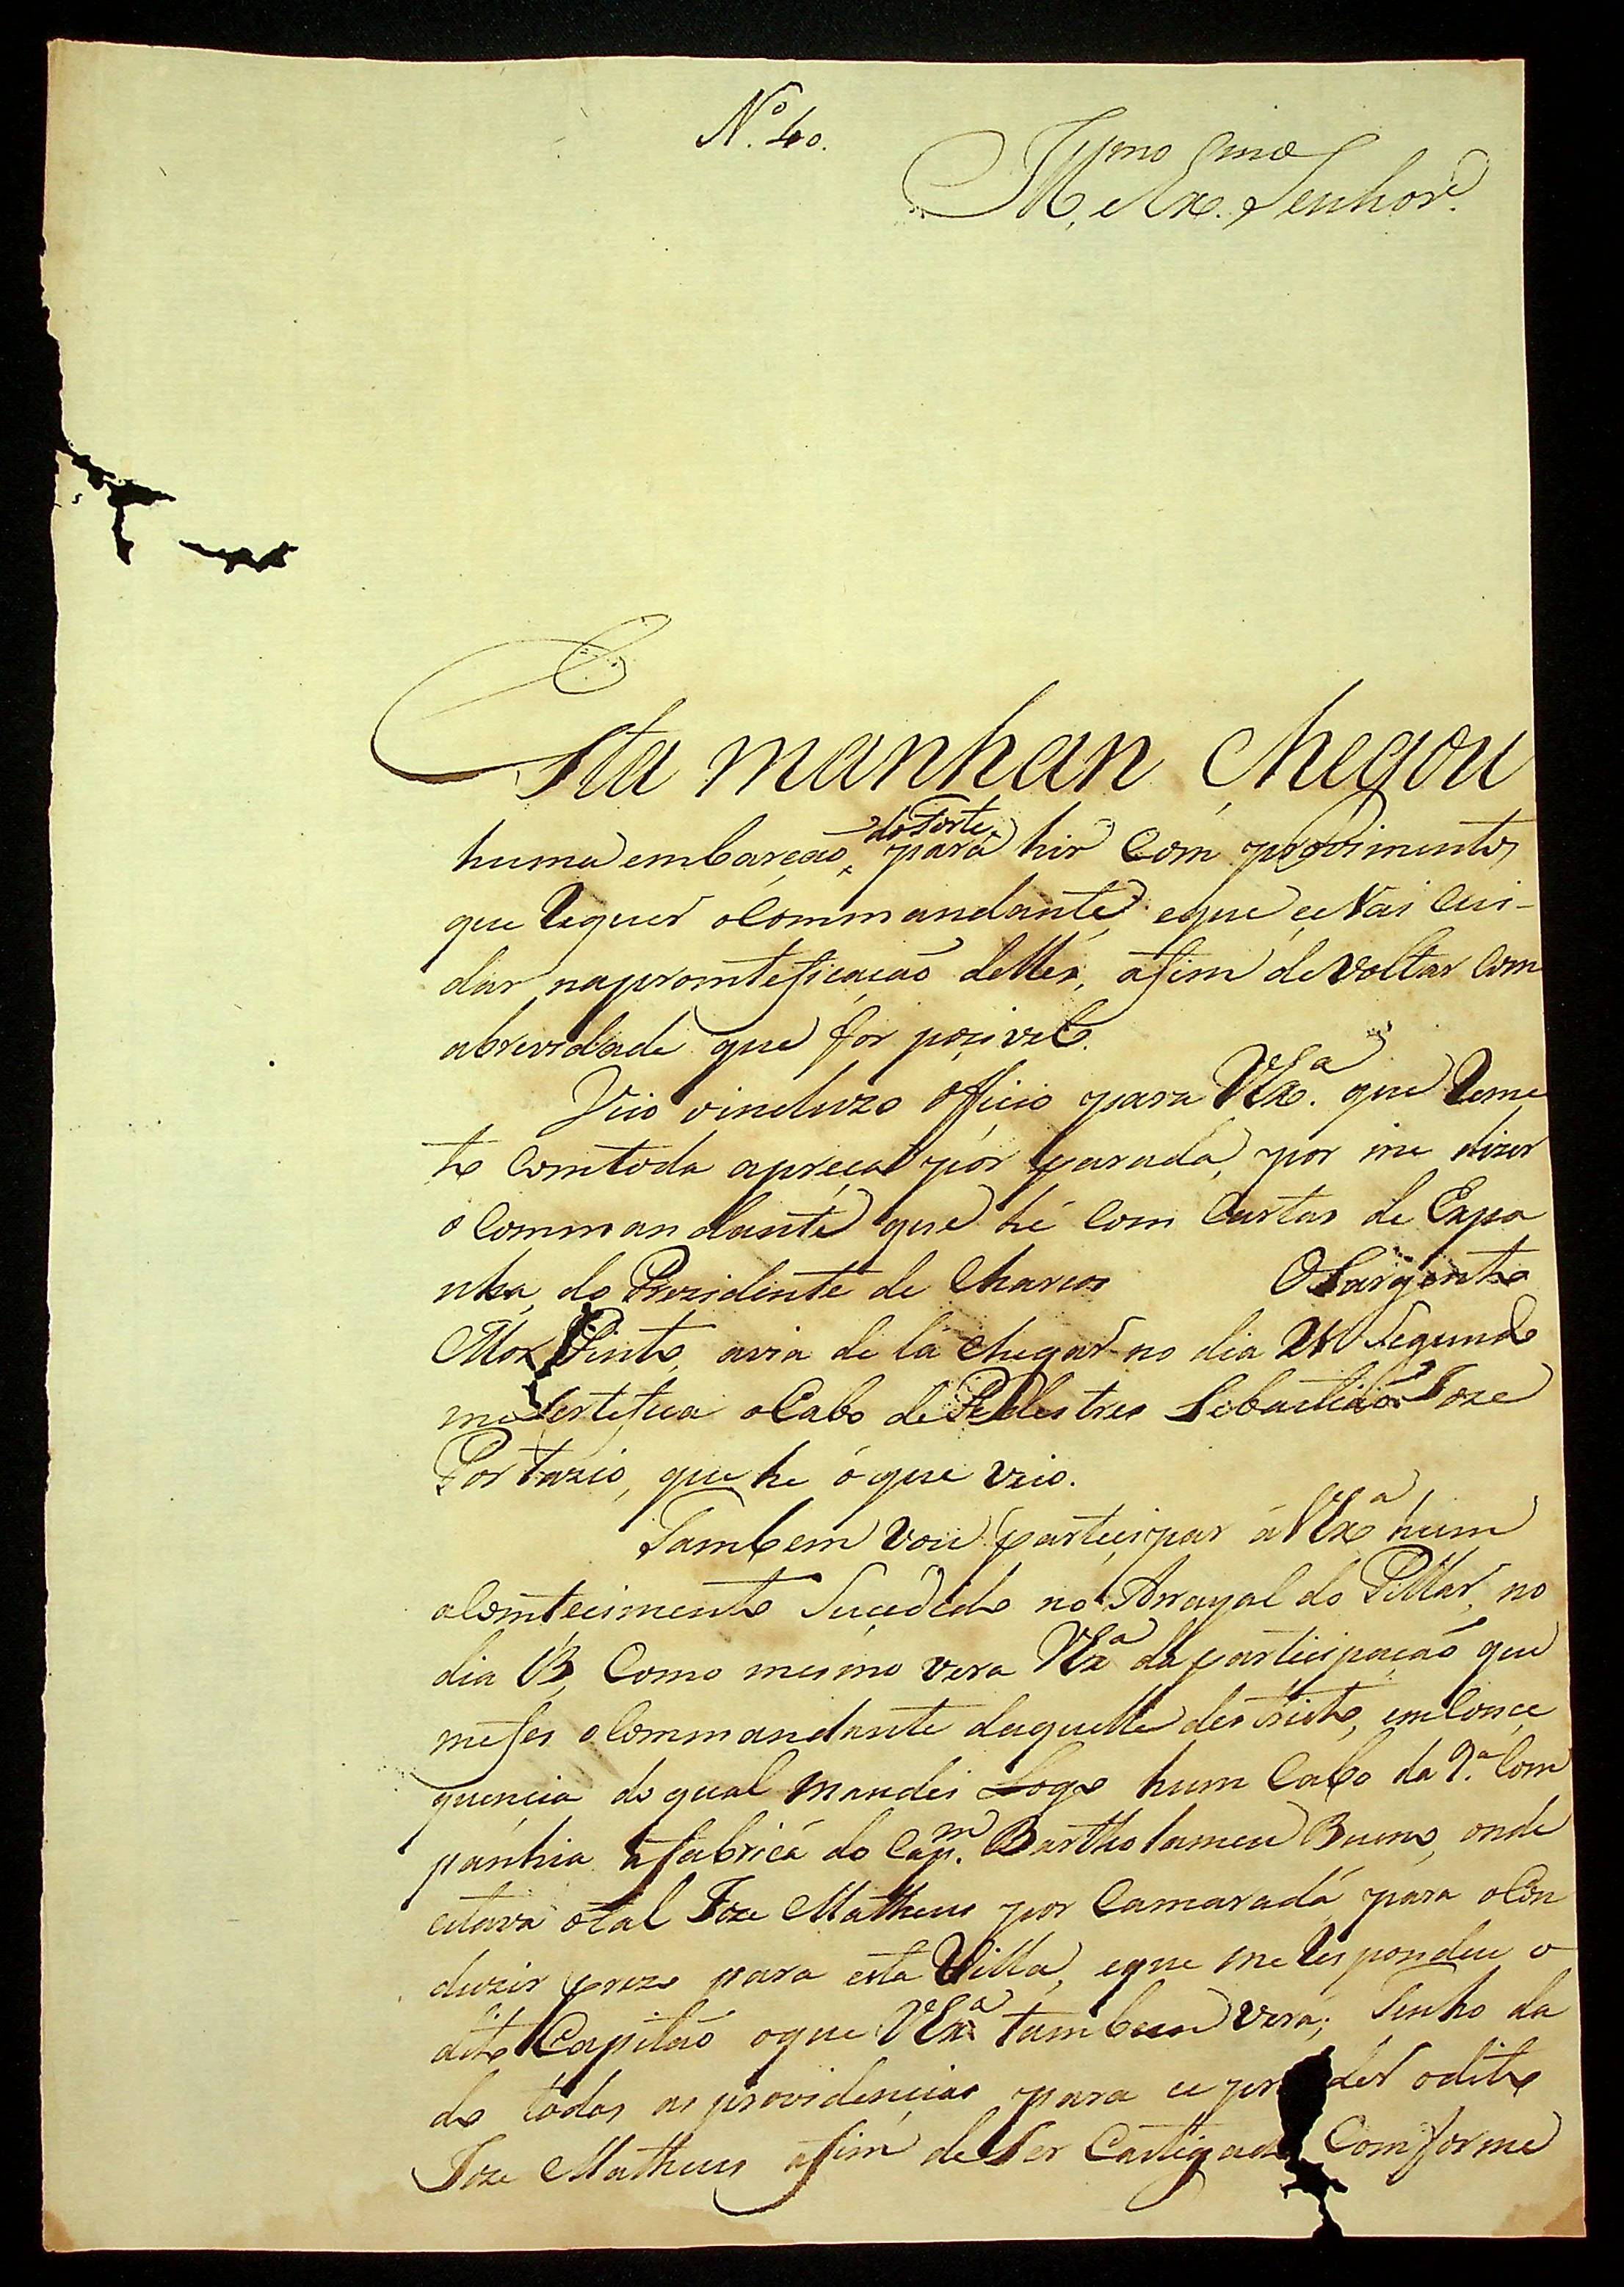 N.º 40.
Ill.mo e Ex.mo Senhor.
Esta manhan chegou
do Forte
huma embarcaçaõ, para hir com provimentos
que requer o Commandante, eque ce vai cui-
dar napromteficaçaõ delles, afim de voltar com
abrevidade que for pocivel.
Veio oincluzo officio para VEx.ª que reme
to comtoda apreça por parada, por me dizer
o Commandante que hé com Cartas de Espa
nha, do Prezidente de Charcas O Sargento
Mor Pinto, avia de lá chegar no dia 21 Segundo
me Sertefica o Cabo de Pedestres Sebastiaõ Joze
Portazio, que he ó que veio.
Tambem vou participar á VEx.ª hum
acomtecimento Sucedido no Arrayal do Pillar, no
dia 13, Como mesmo vera VEx.ª da participaçaõ que
mefes o Commandante daquelle destricto, em Conce
quencia do qual mandei Logo hum Cabo da 2.ª Com
panhia afabrica do Cap.m Bartholameu Bueno, onde
estava otal Joze Matheus por Camarada, para o Con
duzir prezo para esta Villa, eque me respondeu o
dito Capitaõ oque VEx.ª tambem vera; Tenho da
do todas as providencias para ce prender odito
Joze Matheus afim de Ser Castigado Comforme